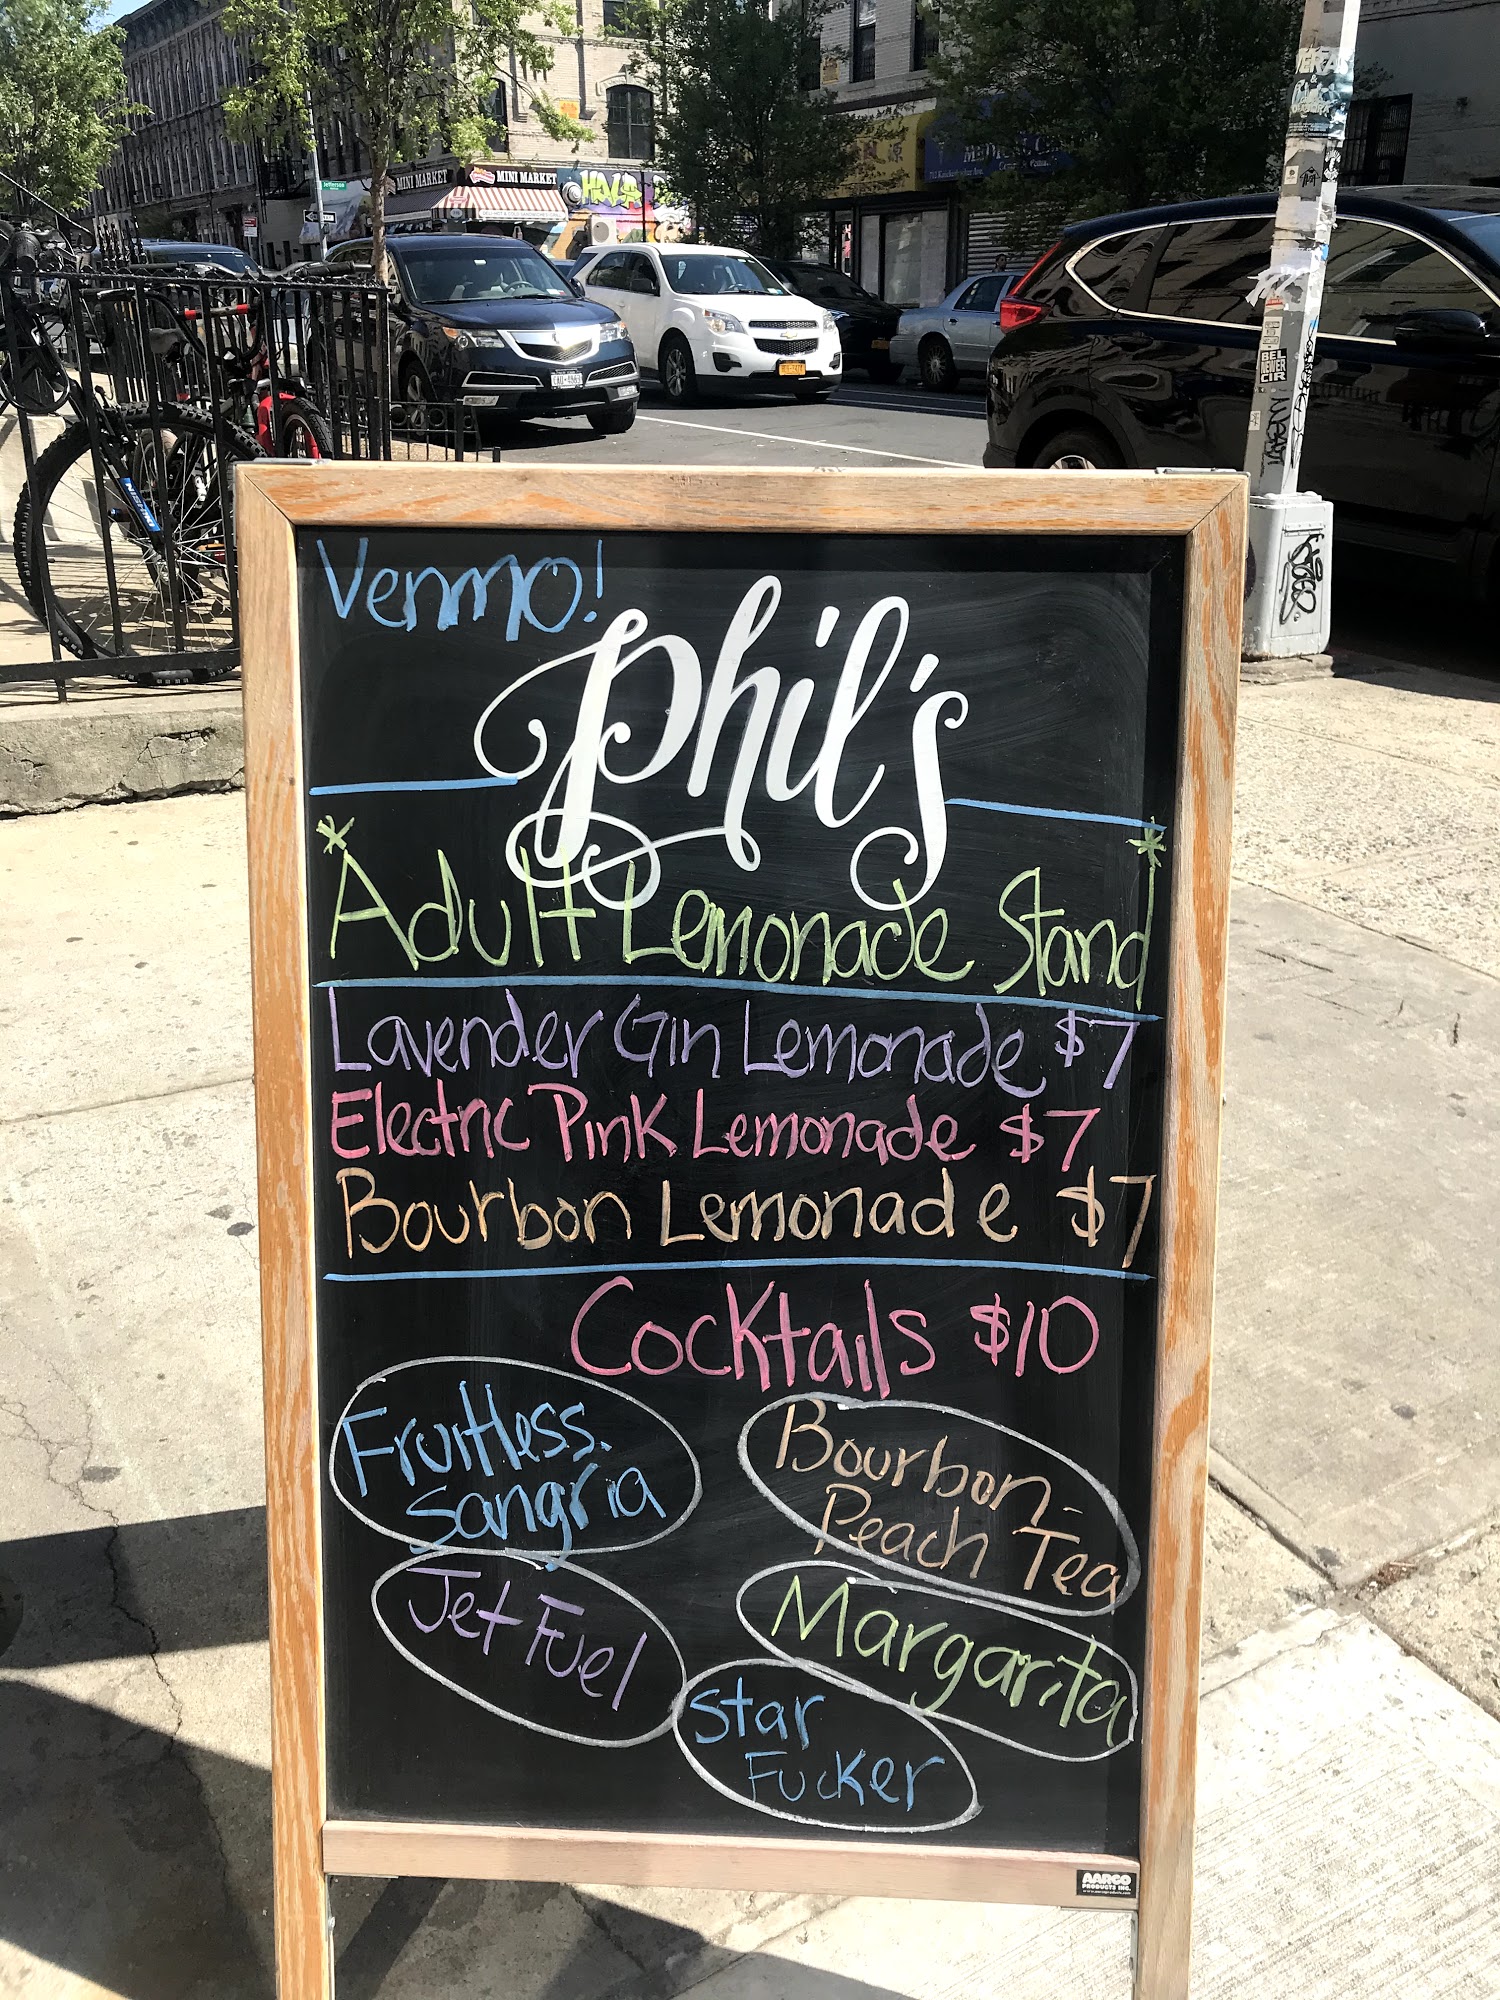 MINI MARKET
MINI MARKET
HOLA
Jefferson
BEL
NEWER
CIR
NISHIKI
Venmo!
Phil's
*Adult Lemonade Stand*
Lavender Gin Lemonade $7
Electric Pink Lemonade $7
Bourbon Lemonade $7
Cocktails $10
Fruitless
sangria
Bourbon-
Peach Tea
Jet Fuel
Margarita
Star
Fucker
AARCO
PRODUCTS INC.